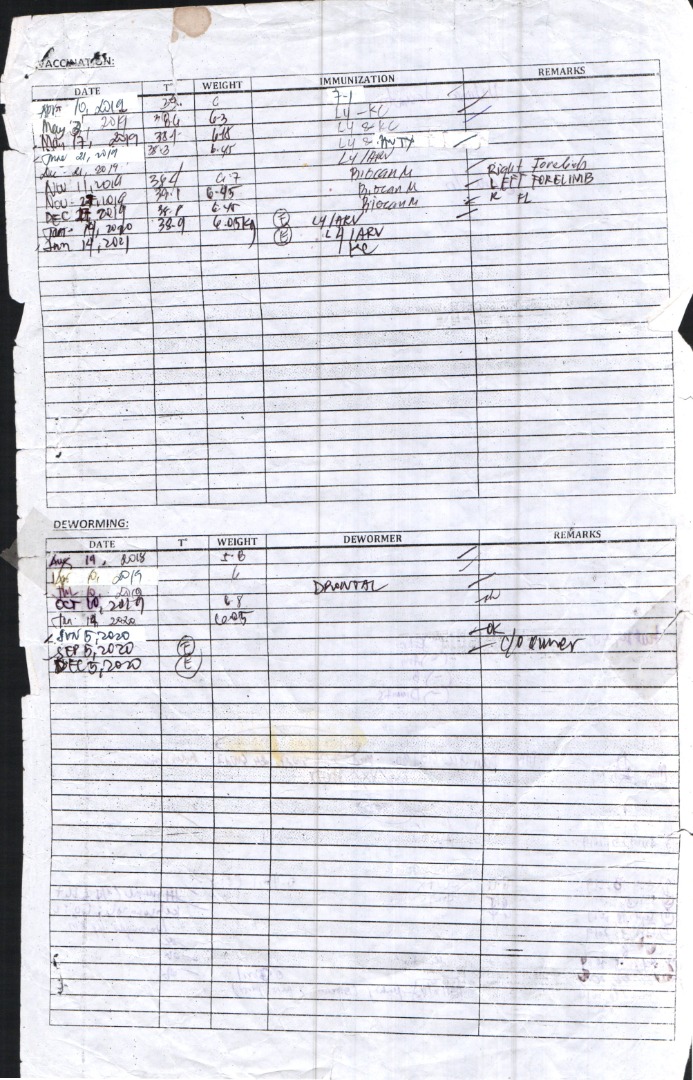 VACCINATION:
DATE T° WEIGHT IMMUNIZATION REMARKS
10, 2019 6 7-1
May 3, 2019 38.6 6.3 L4 - KC
May 17, 2019 38.1 6.8 L4 & KC
June 21, 2019 38.3 6.45 L4 &
21, 2019 L4/ARV
Nov. 11, 2019 6.7 Biocan M Right Forelimb
Nov. 2019 6.95 Biocan M LEFT FORELIMB
DEC 2019 6.45 Biocan M R FL
Jan. 14, 2020 38.9 6.05kg E L4/ARV
Jan 14, 2021 E L4/ARV
KC
DEWORMING:
DATE T° WEIGHT DEWORMER REMARKS
Aug 19, 2018 5.8
10, 2019 6
10, 2019 DRONTAL
OCT 10, 2019 6.8
Jan. 14, 2020 6.05
JUN 5, 2020 OK
SEP 5, 2020 E c/o owner
DEC 5, 2020 E